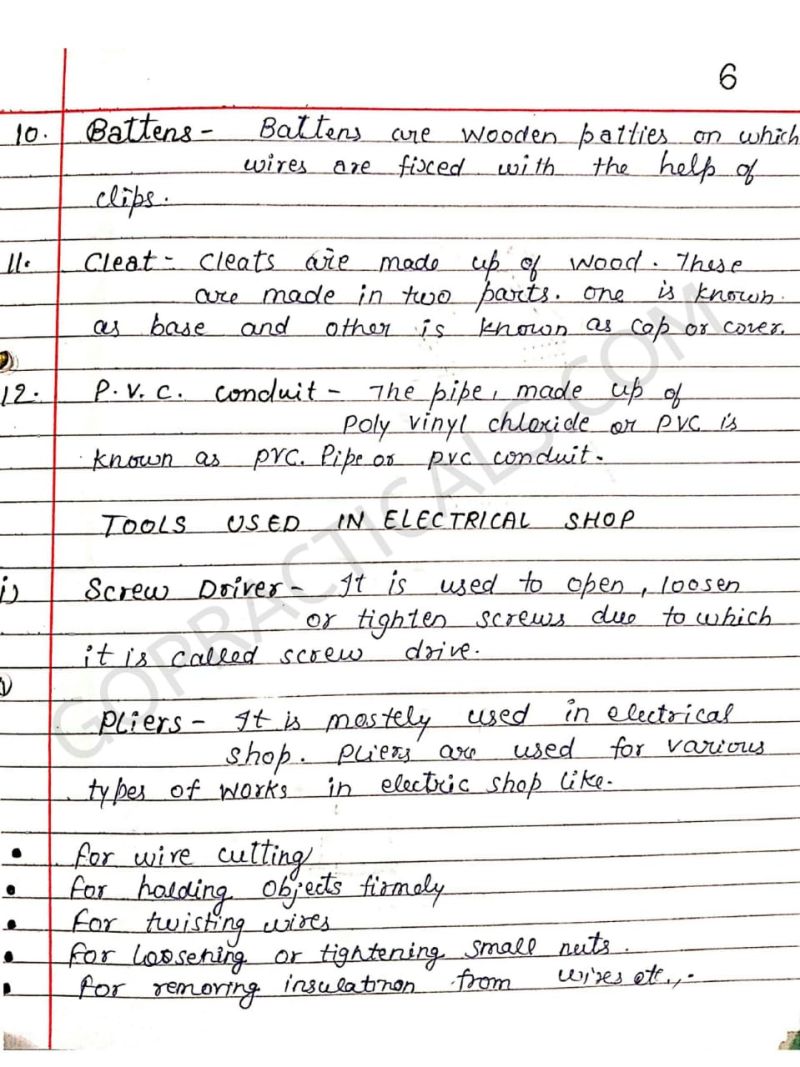 6
10. Battens - Battens are wooden patties on which
wires are fixed with the help of
clips.
11. Cleat - Cleats are made up of wood. These
are made in two parts. One is known
as base and other is known as cap or cover.
12. P.V.C. conduit - The pipe, made up of
Poly vinyl chloride or PVC is
known as PVC. Pipe or PVC conduit.
TOOLS USED IN ELECTRICAL SHOP
i) Screw Driver - It is used to open, loosen
or tighten screws due to which
it is called screw drive.
Pliers - It is mostely used in electrical
shop. Pliers are used for various
types of works in electric shop like.
• for wire cutting
• for holding objects firmely
• for twisting wires
• for loosening or tightening small nuts.
• for removing insulatinon from wires etc.,.
GOPRACTICALS.COM